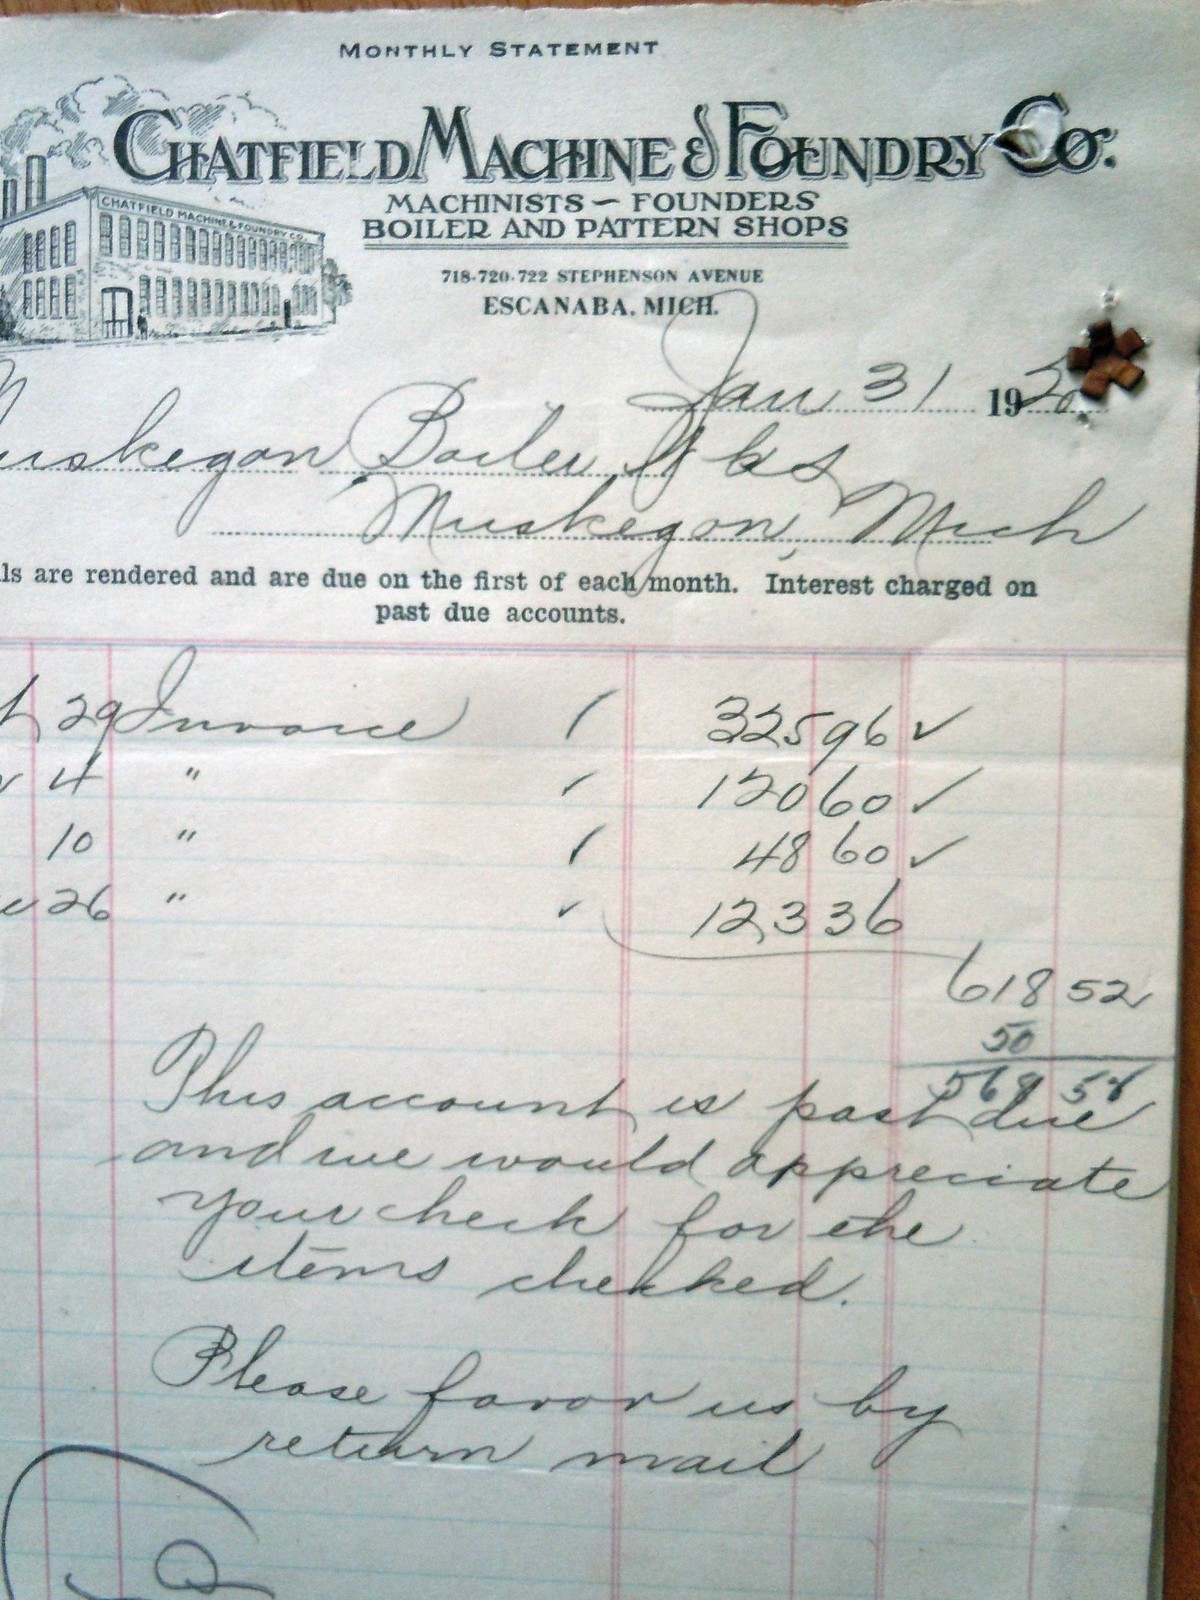 MONTHLY STATEMENT
CHATFIELD MACHINE & FOUNDRY CO.
CHATFIELD MACHINE & FOUNDRY CO.
MACHINISTS — FOUNDERS
BOILER AND PATTERN SHOPS
718-720-722 STEPHENSON AVENUE
ESCANABA, MICH.
Jan 31 19
Muskegon Boiler Wks
Muskegon, Mich
ls are rendered and are due on the first of each month. Interest charged on
past due accounts.
29 Invoice 325 96 ✓
4 " 120 60 ✓
10 " 48 60 ✓
26 " 123 36
618 52
50
This account is past due
and we would appreciate
your check for the
items checked.
Please favor us by
return mail